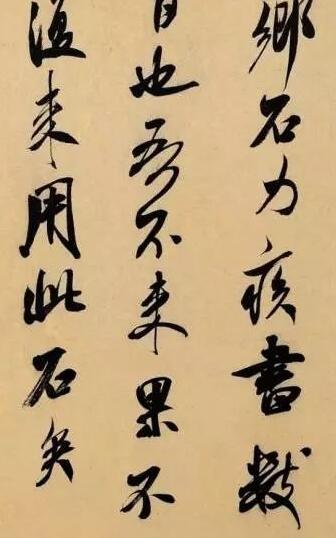 鄉石力疾書數
日也吾不來果不
復來用此石矣